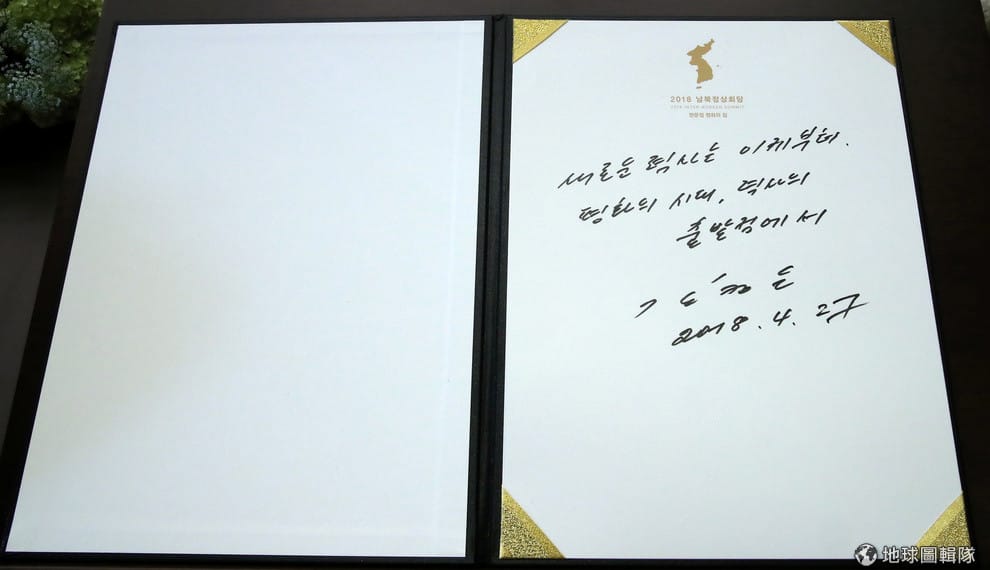 2018 남북정상회담
2018 INTER-KOREAN SUMMIT
판문점 평화의 집
새로운 력사는 이제부터.
평화의 시대, 력사의
출발점에서
김정은
2018. 4. 27
地球圖輯隊